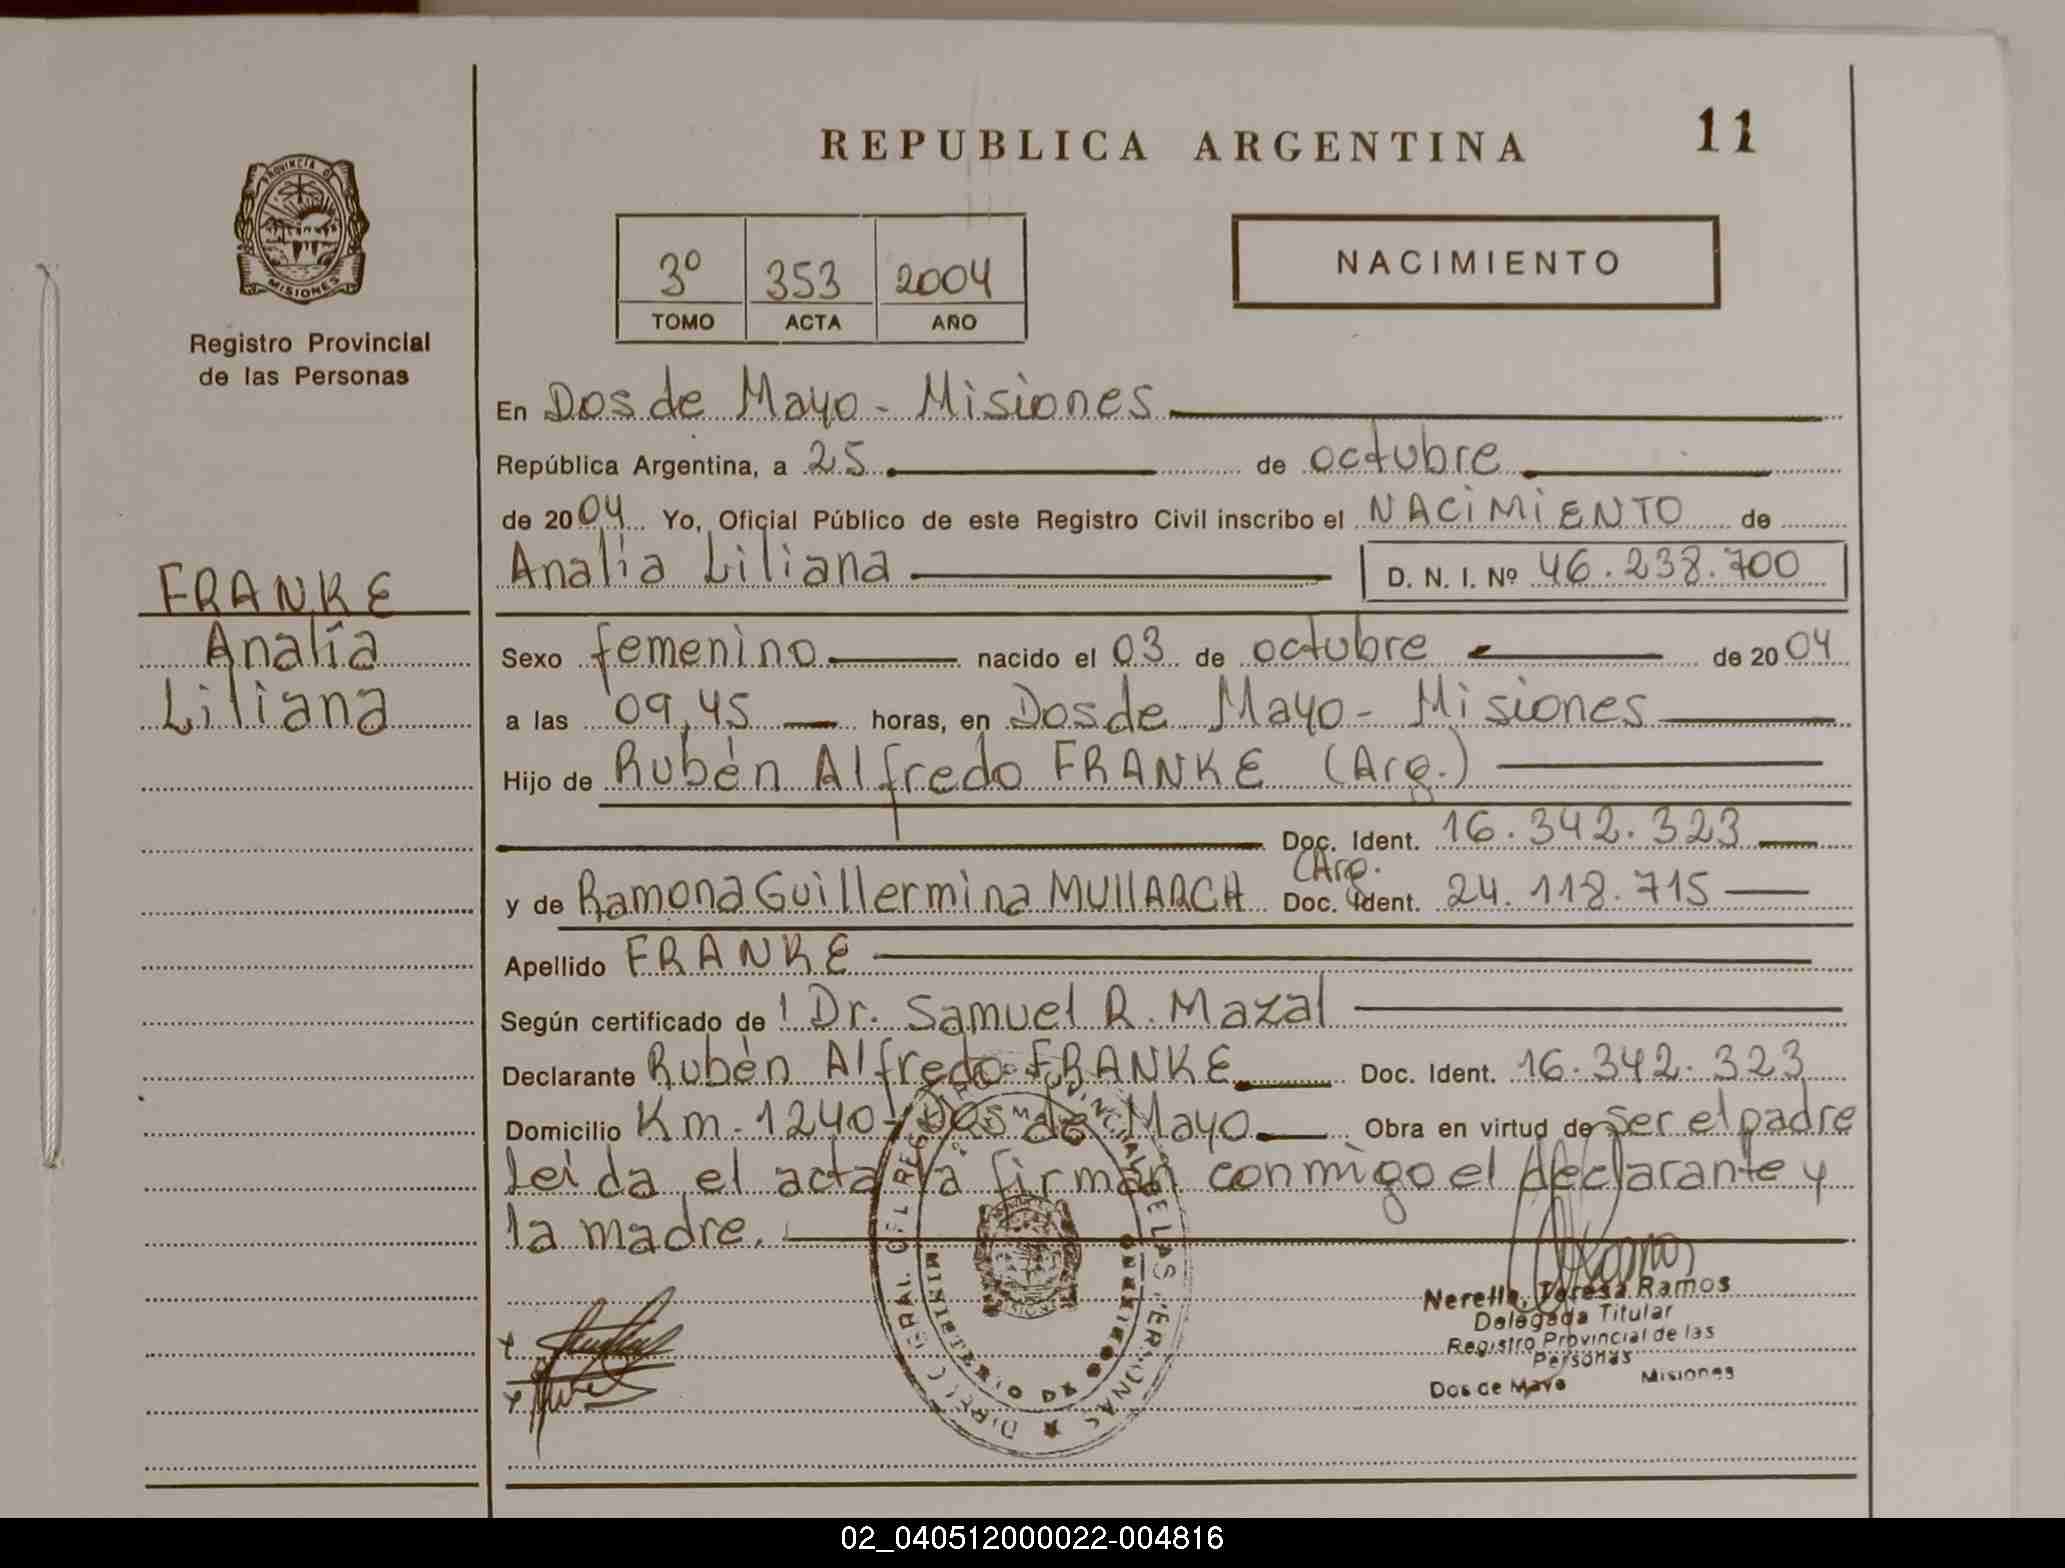 REPUBLICA ARGENTINA
11
PROVINCIA D
MISIONES
Registro Provincial
de las Personas
3º 353 2004
TOMO ACTA AÑO
NACIMIENTO
En Dos de Mayo - Misiones
República Argentina, a 25 de octubre
de 2004 Yo, Oficial Público de este Registro Civil inscribo el NACiMiENTO de
Analía Liliana D. N. I. Nº 46.238.700
FRANKE
Analía
Liliana
Sexo femenino nacido el 03 de octubre de 2004
a las 09,45 horas, en Dos de Mayo - Misiones
Hijo de Rubén Alfredo FRANKE (Arg.)
Doc. Ident. 16.342.323
(Arg.
y de Ramona Guillermina MUllARCH Doc. Ident. 24.118.715
Apellido FRANKE
Según certificado de Dr. Samuel R. Mazal
Declarante Rubén Alfredo FRANKE Doc. Ident. 16.342.323
Domicilio Km. 1240 - Dos de Mayo Obra en virtud de ser el padre
Leída el acta la firman conmigo el declarante y
la madre.
Nerella, Teresa Ramos
Delegada Titular
Registro Provincial de las
Personas
Dos de Mayo Misiones
02_040512000022-004816